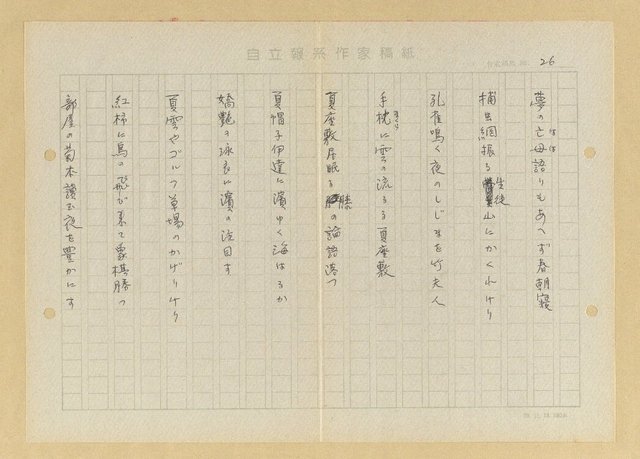 自立報系作家稿紙
26
夢の亡母語りもあへず春朝寝
はは
捕虫網振る生徒山にかくれけり
孔雀鳴く夜のしじまを竹夫人
手枕に雲の流るる夏座敷
夏座敷居眠る膝の論語落つ
夏帽子伊達に濱ゆく海はるか
嬌艶の泳衣に濱の注目す
夏雲やゴルフ草場のかげりけり
紅柿に鳥の飛び来て象棋勝つ
部屋の菊本讀む夜を豊かにす